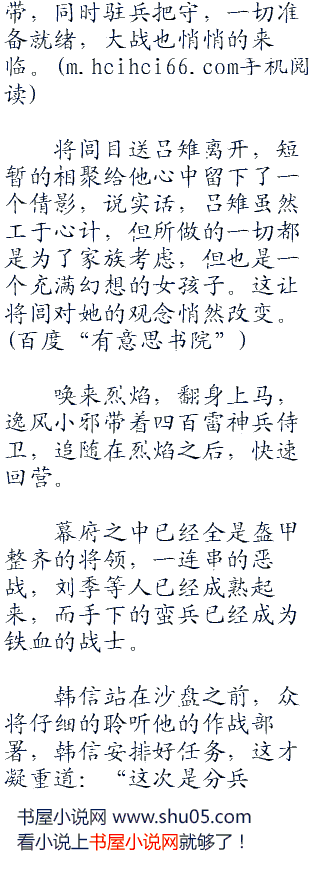 带，同时驻兵把守，一切准
备就绪，大战也悄悄的来
临。(m.hcihci66.com手机阅
读)
将闾目送吕雉离开，短
暂的相聚给他心中留下了一
个倩影，说实话，吕雉虽然
工于心计，但所做的一切都
是为了家族考虑，但也是一
个充满幻想的女孩子。这让
将闾对她的观念悄然改变。
(百度“有意思书院”)
唤来烈焰，翻身上马，
逸风小邪带着四百雷神兵侍
卫，追随在烈焰之后，快速
回营。
幕府之中已经全是盔甲
整齐的将领，一连串的恶
战，刘季等人已经成熟起
来，而手下的蛮兵已经成为
铁血的战士。
韩信站在沙盘之前，众
将仔细的聆听他的作战部
署，韩信安排好任务，这才
凝重道：“这次是分兵
书屋小说网 www.shu05.com
看小说上书屋小说网就够了！